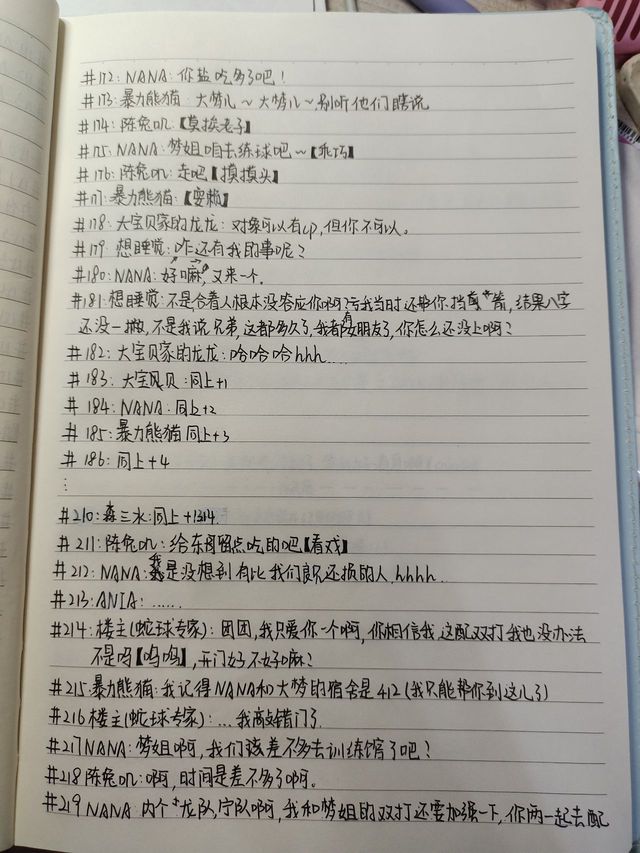 #172: NANA: 你盐吃多了吧！
#173: 暴力熊猫: 大梦儿~大梦儿~,别听他们瞎说
#174: 陈兔叽:【莫挨老子】
#175: NANA: 梦姐咱去练球吧~【乖巧】
#176: 陈兔叽: 走吧【摸摸头】
#17: 暴力熊猫:【耍赖】
#178: 大宝贝家的龙龙: 对象可以有cp,但你不可以。
#179: 想睡觉: 咋还有我的事呢？
#180: NANA: 好嘛,又来一个.
#181: 想睡觉: 不是,合着人根本没答应你啊？亏我当时还帮你挡箭,结果八字
还没一撇,不是我说,兄弟,这都多久了,我都有女朋友了,你怎么还没上啊？
#182: 大宝贝家的龙龙: 哈哈哈hhh....
#183: 大宝贝:同上+1
#184: NANA:同上+2
#185: 暴力熊猫同上+3
#186: 同上+4
⋮
#210: 森三水:同上+1314.
#211: 陈兔叽: 给东哥留点吃的吧【看戏】
#212: NANA: 我是没想到有比我们良兄还损的人,hhhh.
#213: ANIA: ......
#214: 楼主(蛇球专家): 团团,我只爱你一个啊,你相信我,这配双打我也没办法
不是吗【呜呜】,开门好不好嘛？
#215: 暴力熊猫: 我记得NANA和大梦的宿舍是412(我只能帮你到这儿了)
#216: 楼主(蛇球专家): ...我敲错门了.
#217 NANA: 梦姐啊,我们该差不多去训练馆了吧？
#218 陈兔叽: 啊,时间是差不多了啊。
#219 NANA: 内个龙队,宁队啊,我和梦姐的双打还要加强一下,你两一起去配